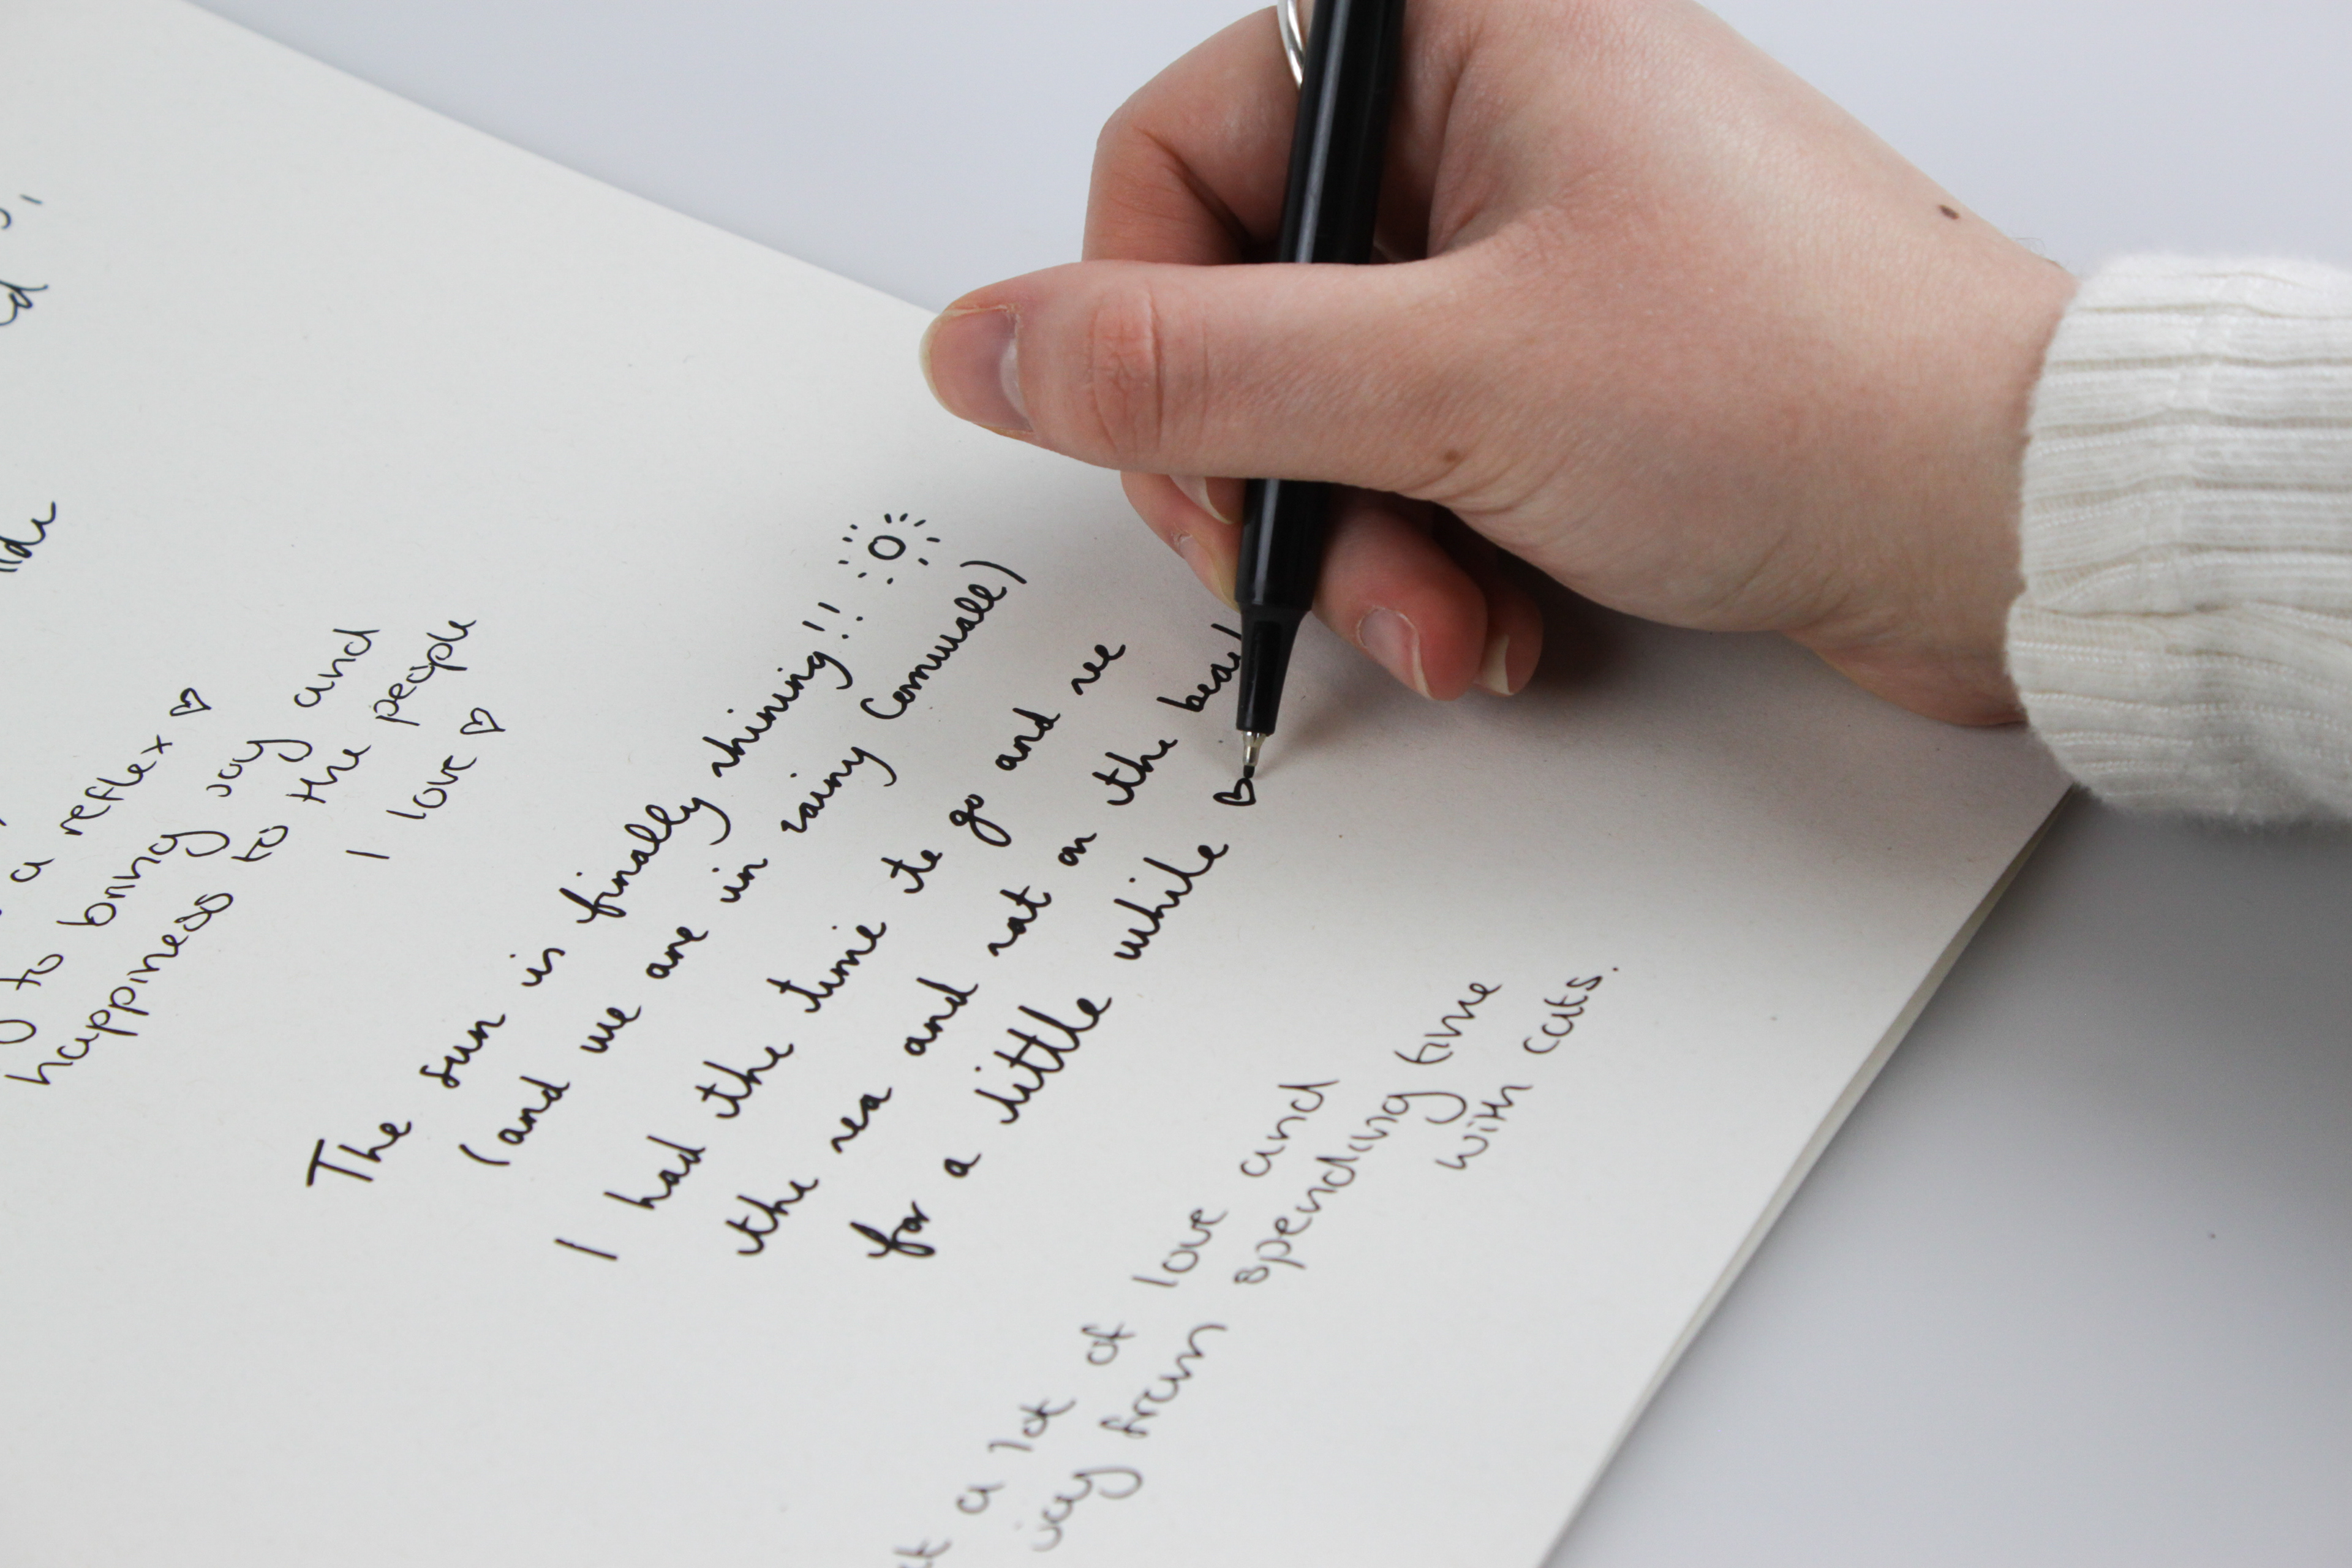 a reflex ♡
to bring joy and
happiness to the people
I love ♡
The sun is finally shining!!
(and we are in rainy Cornwall)
I had the time to go and see
the sea and sat on the
for a little while ♡
a lot of love and
joy from spending time
with cats.